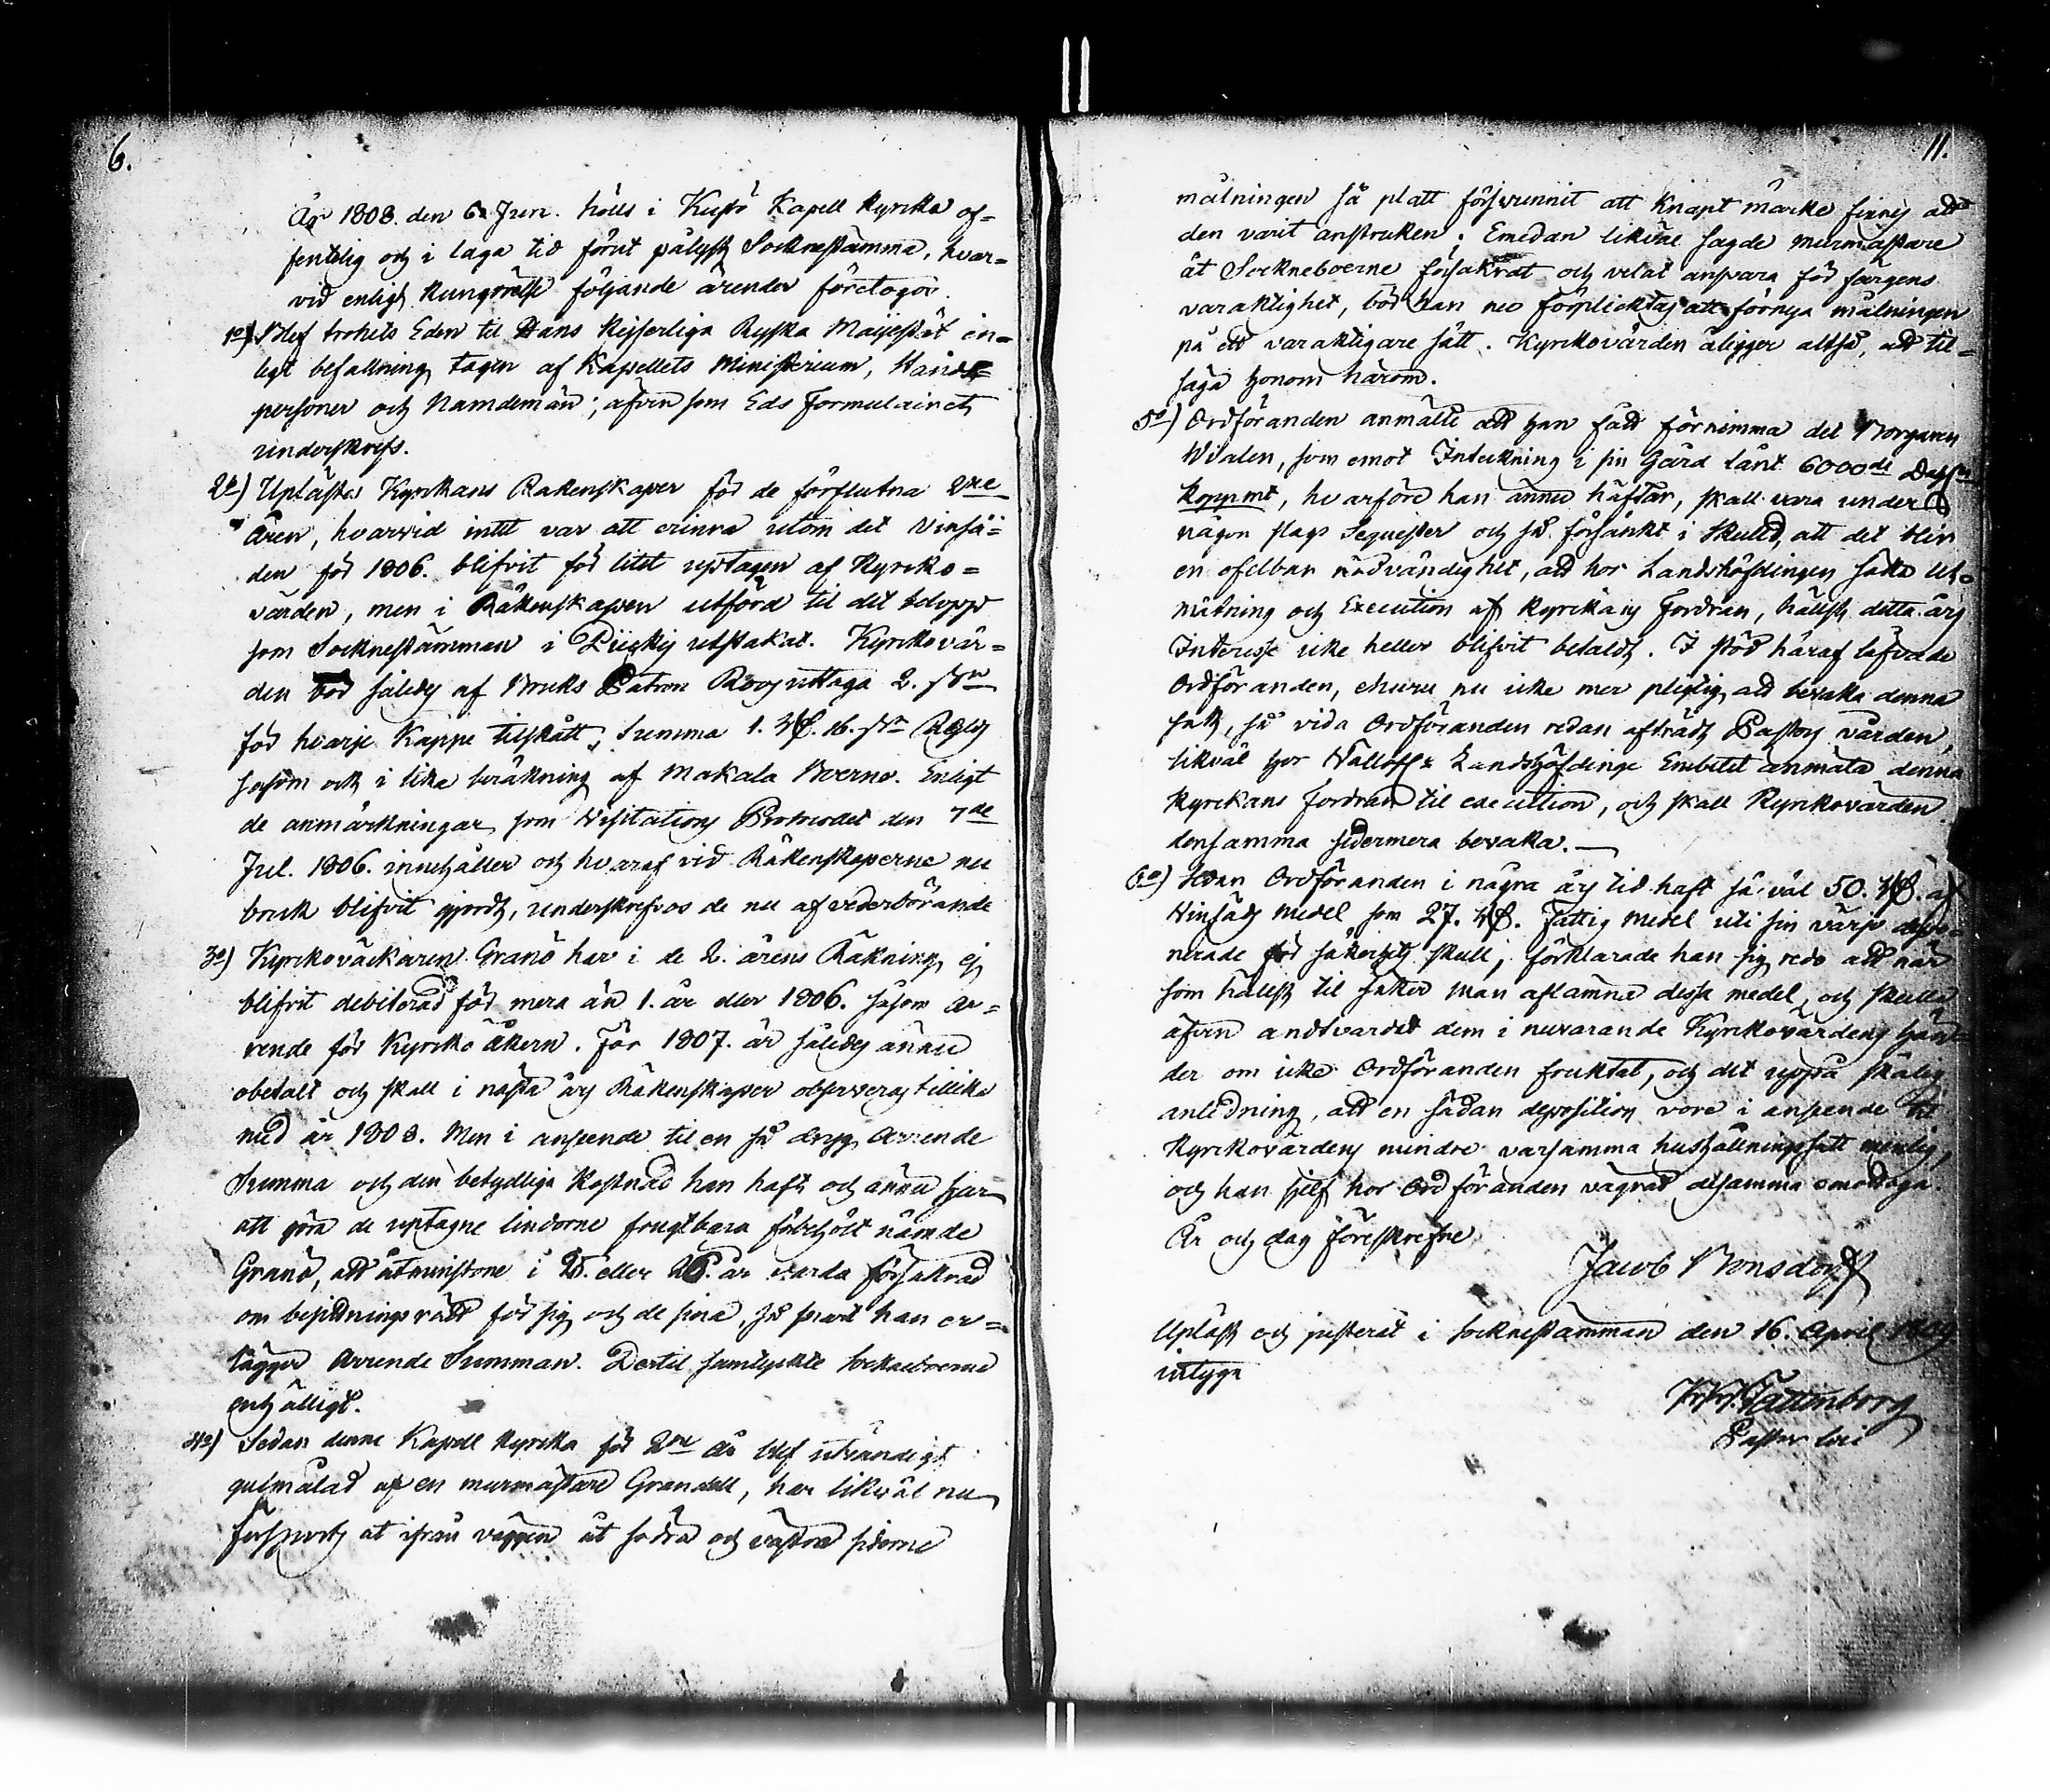 6.
År 1808. den 6. Jun. hölls i Kustö Kapell Kyrcka of=
fentelig och i laga tid förut pålyst Socknestämma, hvar=
vid enligt kungörelse följande ärender företogos.
1o) Blef trohets Eden til Hans Kejserliga Ryska Maijestät en=
ligt befallning tagen af Kapellets Ministerium, Stånds=
personer och Nämdemän; äfven som Eds Formulairet
underskrefs.
2o) Uplästes Kyrckans Räkenskaper för de förflutna 2ne
Åren, hvarvid intet var att erinra utom det Vinsä=
den för 1806. blifvit för litet uptagen af Kyrcko=
värden, men i Räkenskapen utförd til det belopp
som Socknestämman i Piickis utstakat. Kyrckovär=
den bör således af Bruks Patron Roos uttaga 2. sk
för hvarje Kappe tilskått, Summa 1. Rd. 16. sk Rgds
såsom och i lika beräkning af Makala Boerne. Enligt
de anmärkningar som Visitations Protocollet den 7de
Jul. 1806. innehåller och hvaraf vid Räkenskaperne nu
bruk blifvit gjordt, underskrefvos de nu af vederbörande
3o) Kyrckoväckaren Granö har i de 2. årens Räkning ej
blifvit debiterad för mera än 1. år eller 1806. såsom Ar=
rende för Kyrcko åkern. För 1807. är således ännu
obetalt och skall i nästa års Räkenskaper observeras tillika
med år 1808. Men i anseende til en så dryg Arrende
Summa och den betydliga kostnad han haft och ännu har
att göra de uptagne lindorne frugtbara förbehölt nämde
Granö, att åtminstone i 25. eller 26. år varda försäkrad
om besittningsrätt för sig och de sina, så snart han er=
lägger Arrende Summan. Dertil samtyckte Sockneboerne
enhälligt.
4o) Sedan denne Kapell Kyrcka för 2ne år blef utvändigt
gulmålad af en murmästare Grandell, har likväl nu
försports at ifrån väggen åt södra och västra sidorne
11.
målningen så platt försvunnit att knapt märke finnes att
den varit anstruken; Emedan likväl sagde murmästare
åt Sockneboerne försäkrat och velat ansvara för färgens
varaktighet, bör han nu förplicktas att förnya målningen
på ett varaktigare sätt. Kyrckovärden åligger altså, att til=
säga honom härom.
5o) Ordföranden anmälte att han fått förnimma det Borgaren
Widlen, som emot Inteckning i sin Gård lånt 6000de Dahl
Koppmt, hvarföre han ännu häftar, skall vara under
någon slags Sequester och så försänkt i skuld, att det blir
en ofelbar nödvändighet, att hos Landshöfdingen söka Ut=
mätning och Execution af Kyrckans Fordran, hälst detta års
Interesse icke heller blifvit betaldt. I stöd häraf låfvade
Ordföranden, ehuru nu icke mer pligtig att bevaka denna
sak, så vida Ordföranden redan afträdt Pastors vården,
likväl hos Vällofl. Landshöfdinge Embetet anmäla denna
Kyrckans fordran til execution, och skall Kyrckovärden
densamma sedermera bevaka.
6o) Sedan Ordföranden i några års tid haft så väl 50. Rd. af
Vinsäds medel som 27. Rd. Fattig medel uti sin värjo depo=
nerade för säkerhets skull, förklarade han sig redo att när
som hälst til säker man aflämna dessa medel, och skulle
äfven andtvardat dem i nuvarande Kyrckovärdens hän=
der om icke Ordföranden fruktat, och det uppå skälig
anledning, att en sådan deposition vore i anseende til
Kyrckovärdens mindre varsamma hushållningssätt menlig,
och han sjelf hos Ordföranden vägrat desamma emottaga.
År och dag föreskrefne
Jacob Bonsdorff
Upläst och justerat i Socknestämman den 16. April 1809
intyga
Tattenborg
Pastor loci